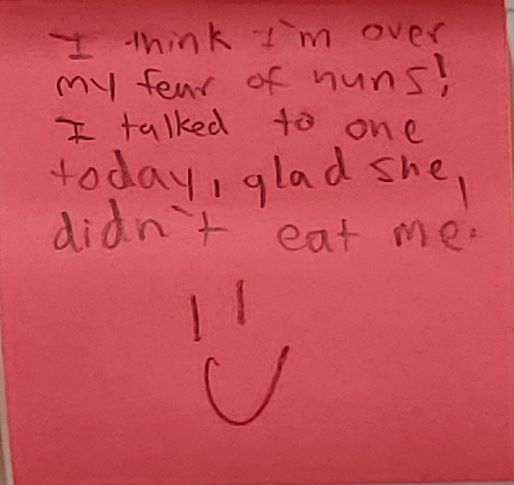 I think I'm over
my fear of nuns!
I talked to one
today, glad she,
didn't eat me.